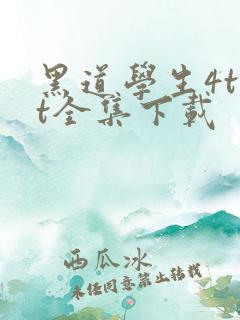 黑道學生4t
t全集下載
西瓜冰
未经同意禁止转载